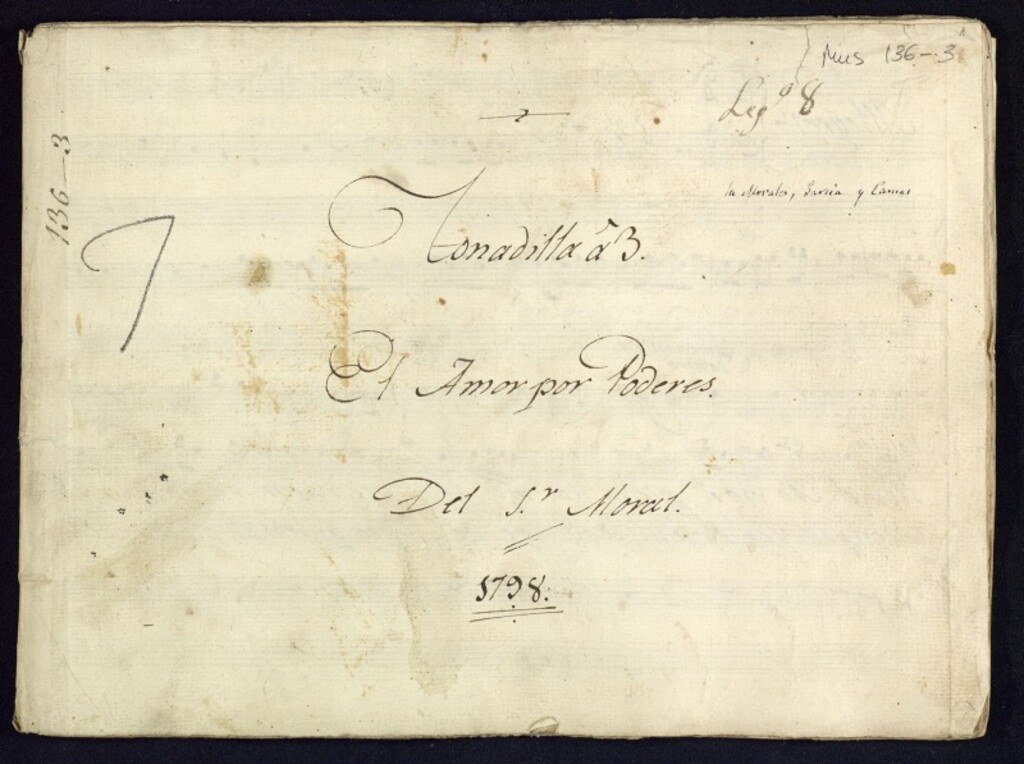 Mus 136-3
Leg.º 8
la Morales, Garcia y Camas
136-3
Tonadilla â 3.
El Amor por Poderes.
Del S.r Moral.
1798.